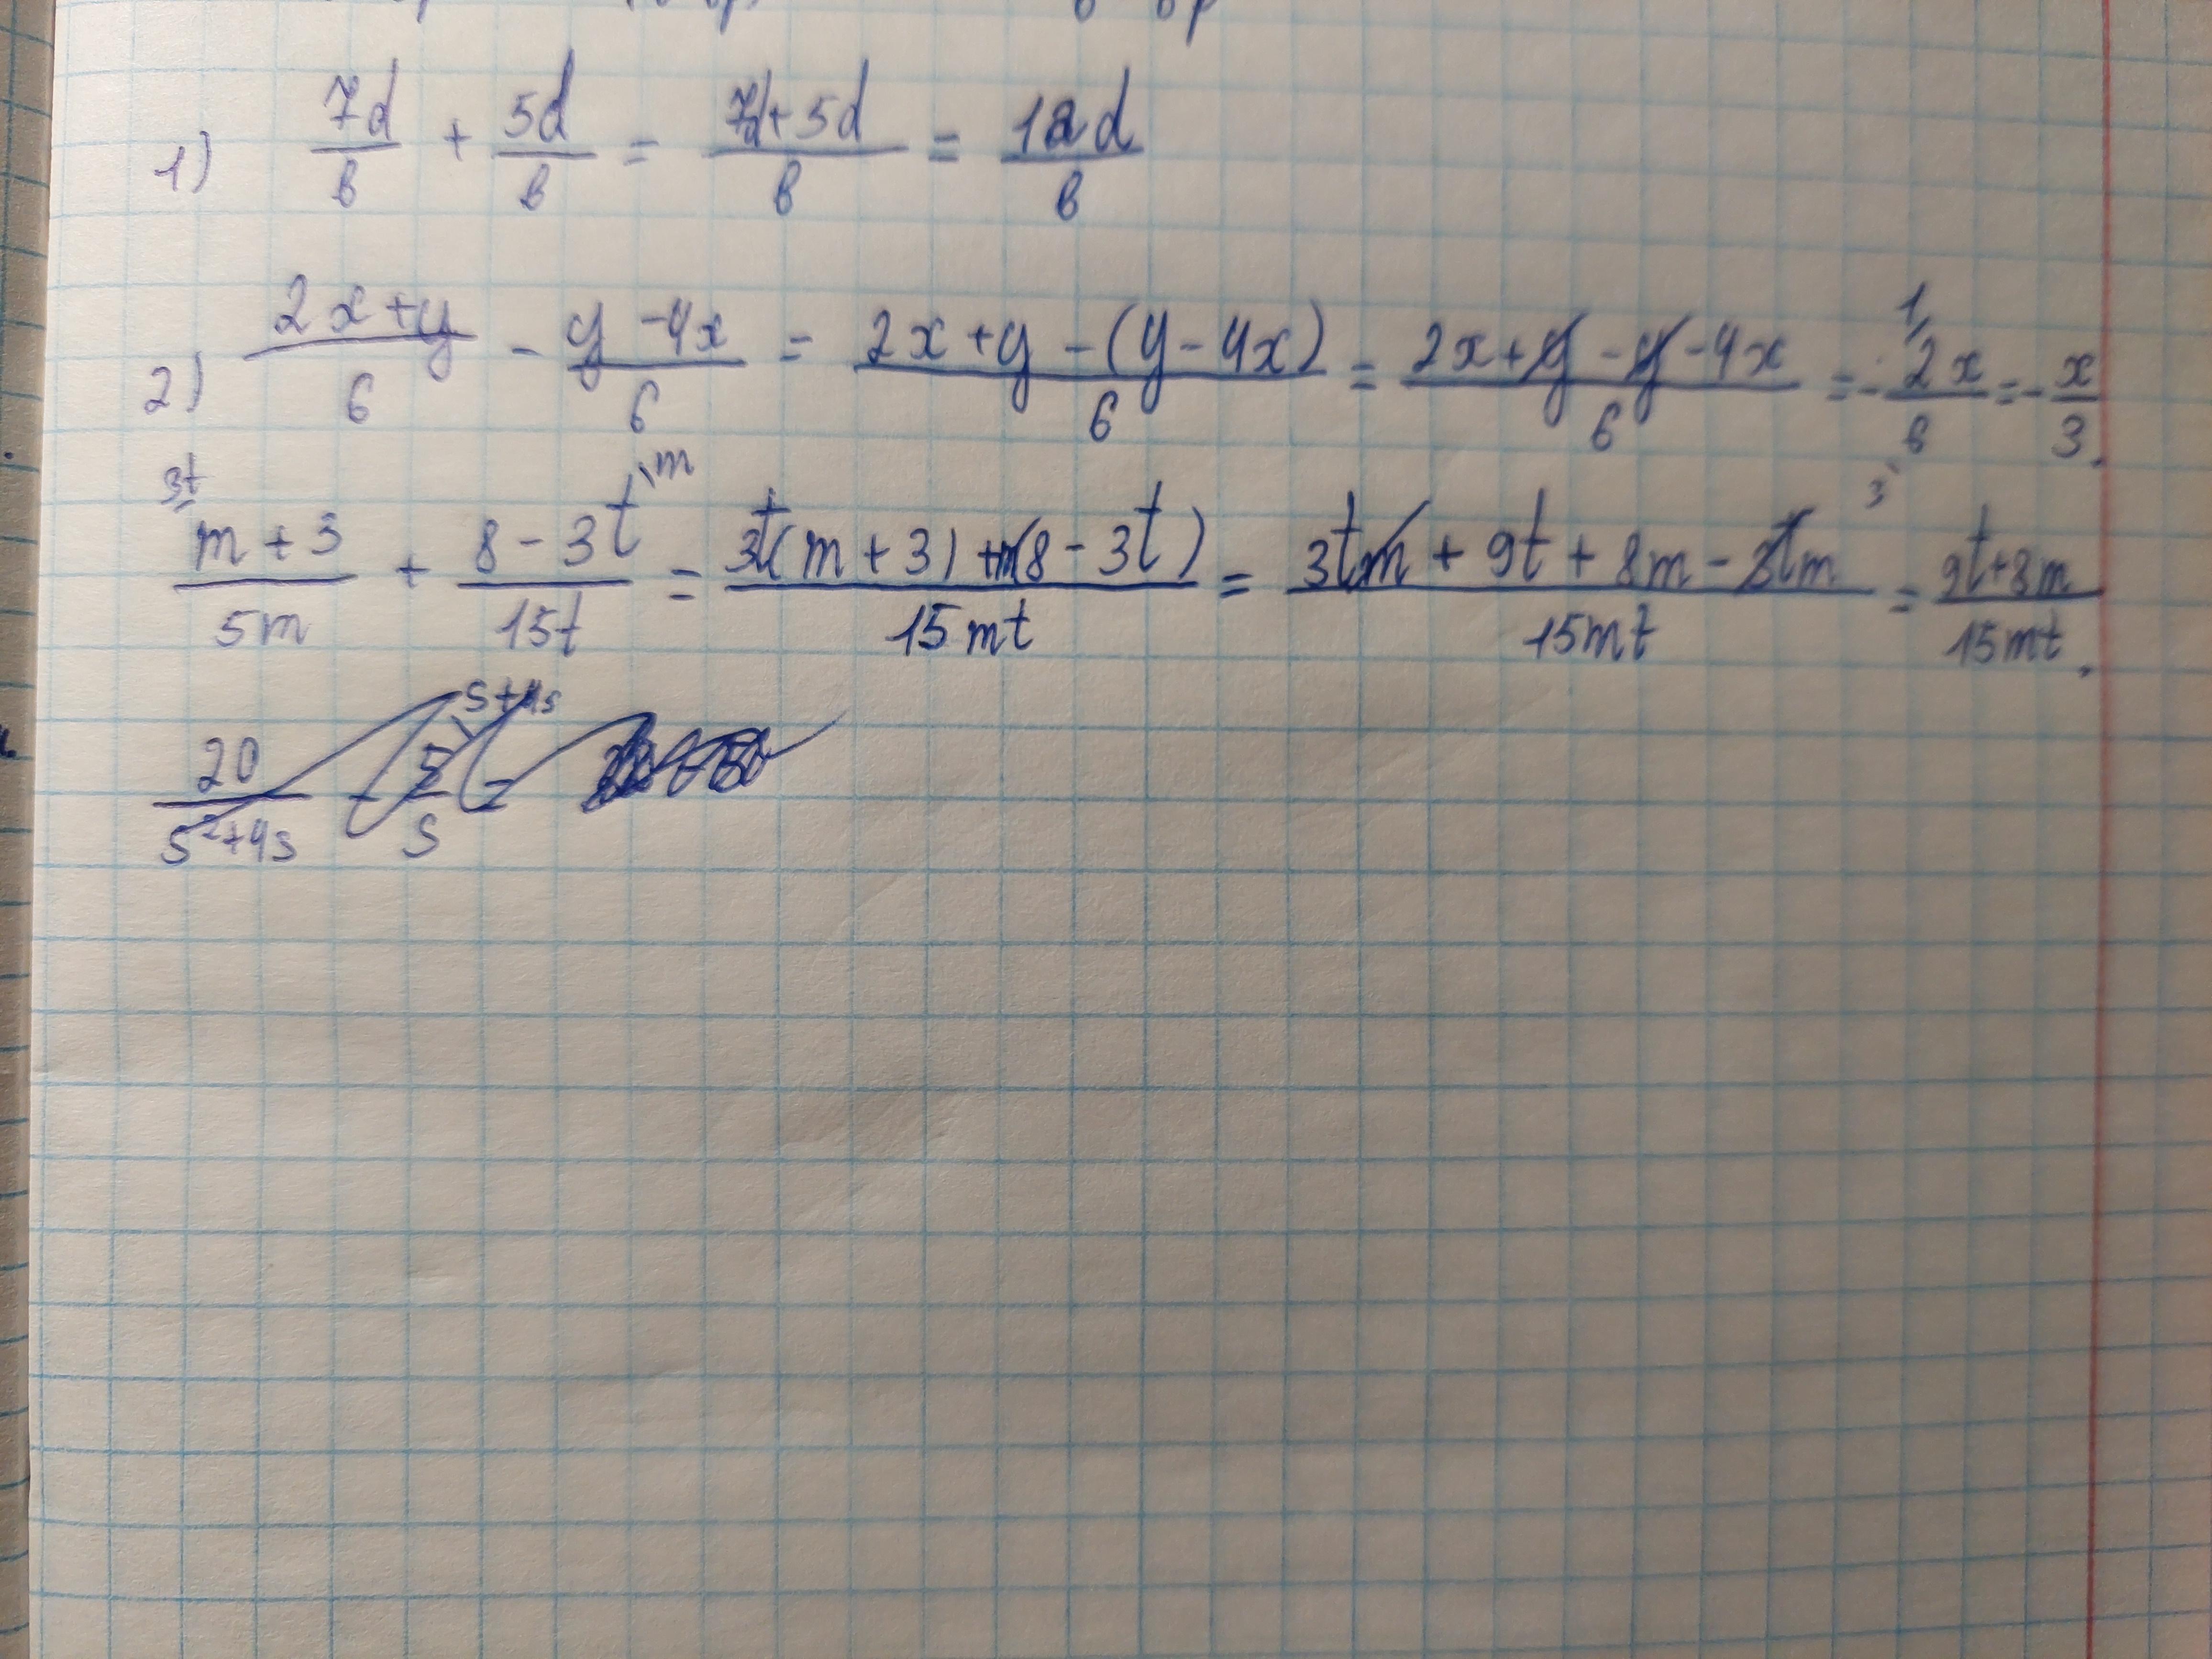 1) 7d/b + 5d/b = 7d+5d/b = 12d/b
2) 2x+y/6 - y-4x/6 = 2x+y-(y-4x)/6 = 2x+y-y-4x/6 = - 2x/6 = - x/3.
3t m+3/5m + 8-3t/15t \m = 3t(m+3)+m(8-3t)/15mt = 3tm+9t+8m-3tm/15mt = 9t+8m/15mt.
20/s²+4s - 5/s \s+4s =